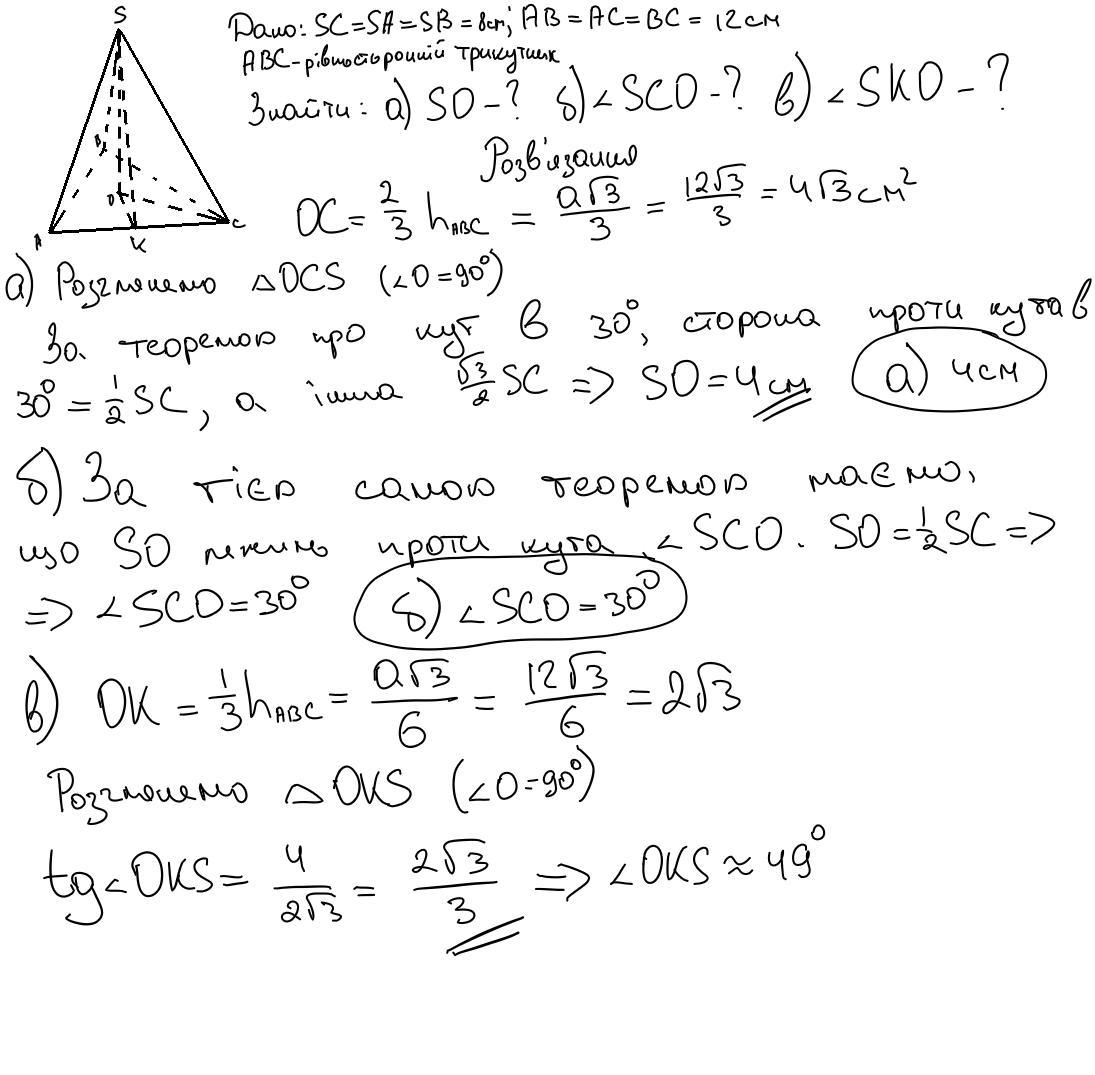 S
Дано: SC=SA=SB=8см; AB=AC=BC=12см
ABC-рівносторонній трикутник
Знайти: а) SO-? б) ∠SCO-? в) ∠SKO-?
Розв'язання
B
O
A
K
C
OC = 2/3 h_ABC = a√3/3 = 12√3/3 = 4√3 см²
а) Розглянемо △OCS (∠O=90°)
За теоремою про кут в 30°, сторона проти кута в
30° = 1/2 SC, а інша √3/2 SC => SO=4см а) 4см
б) За тією самою теоремою маємо,
що SO лежить проти кута ∠SCO. SO=1/2 SC =>
=> ∠SCO=30° б) ∠SCO=30°
в) OK = 1/3 h_ABC = a√3/6 = 12√3/6 = 2√3
Розглянемо △OKS (∠O=90°)
tg∠OKS = 4/2√3 = 2√3/3 => ∠OKS ≈ 49°